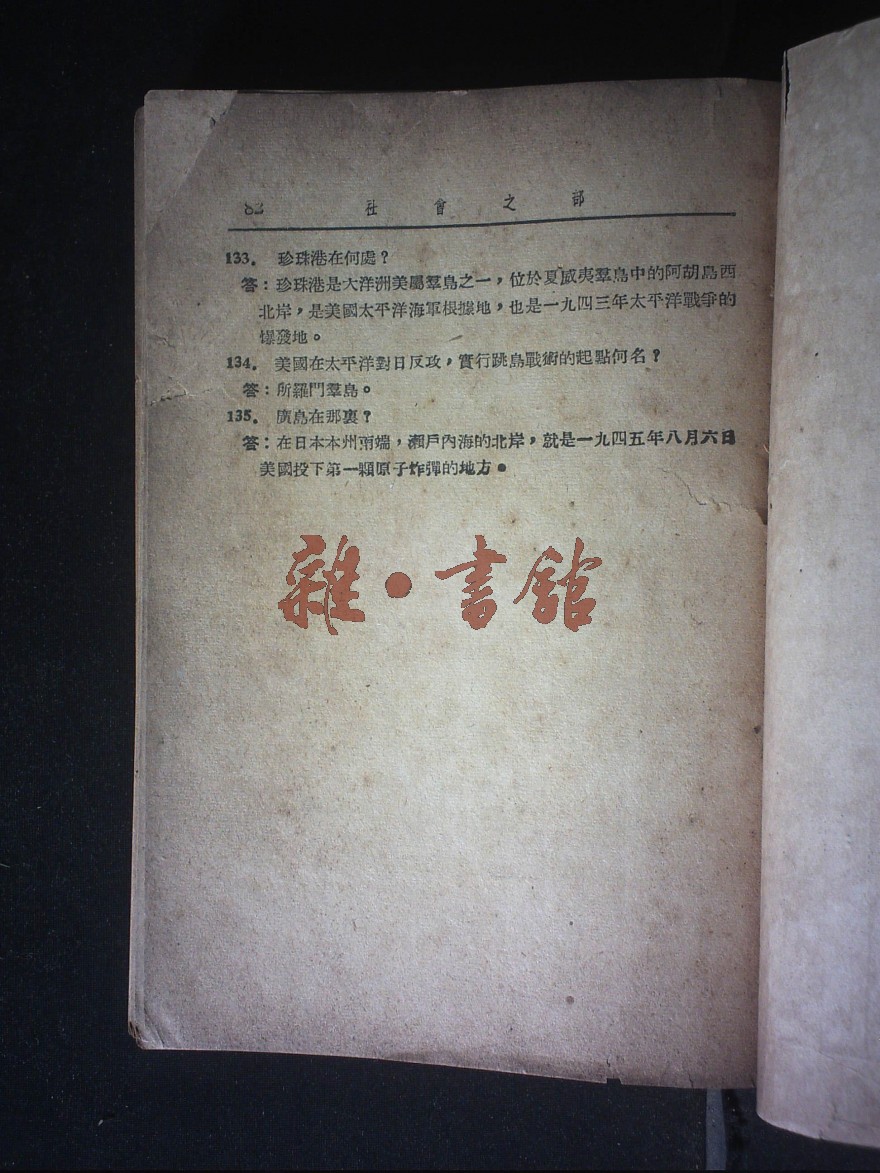 82 社會之部
133. 珍珠港在何處？
答：珍珠港是大洋洲美屬羣島之一，位於夏威夷羣島中的阿胡島西
北岸，是美國太平洋海軍根據地，也是一九四三年太平洋戰爭的
爆發地。
134. 美國在太平洋對日反攻，實行跳島戰術的起點何名？
答：所羅門羣島。
135. 廣島在那裏？
答：在日本本州南端，瀨戶內海的北岸，就是一九四五年八月六日
美國投下第一顆原子炸彈的地方。
雜·書館